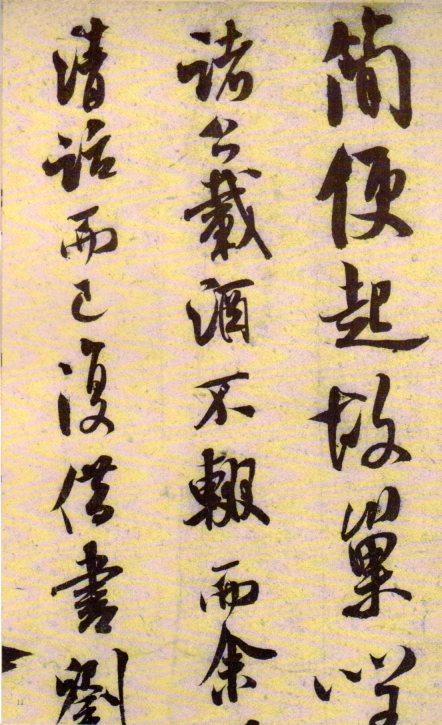 簡便起故巢嗟
諸公載酒不輟而余
清話而已復借書劉